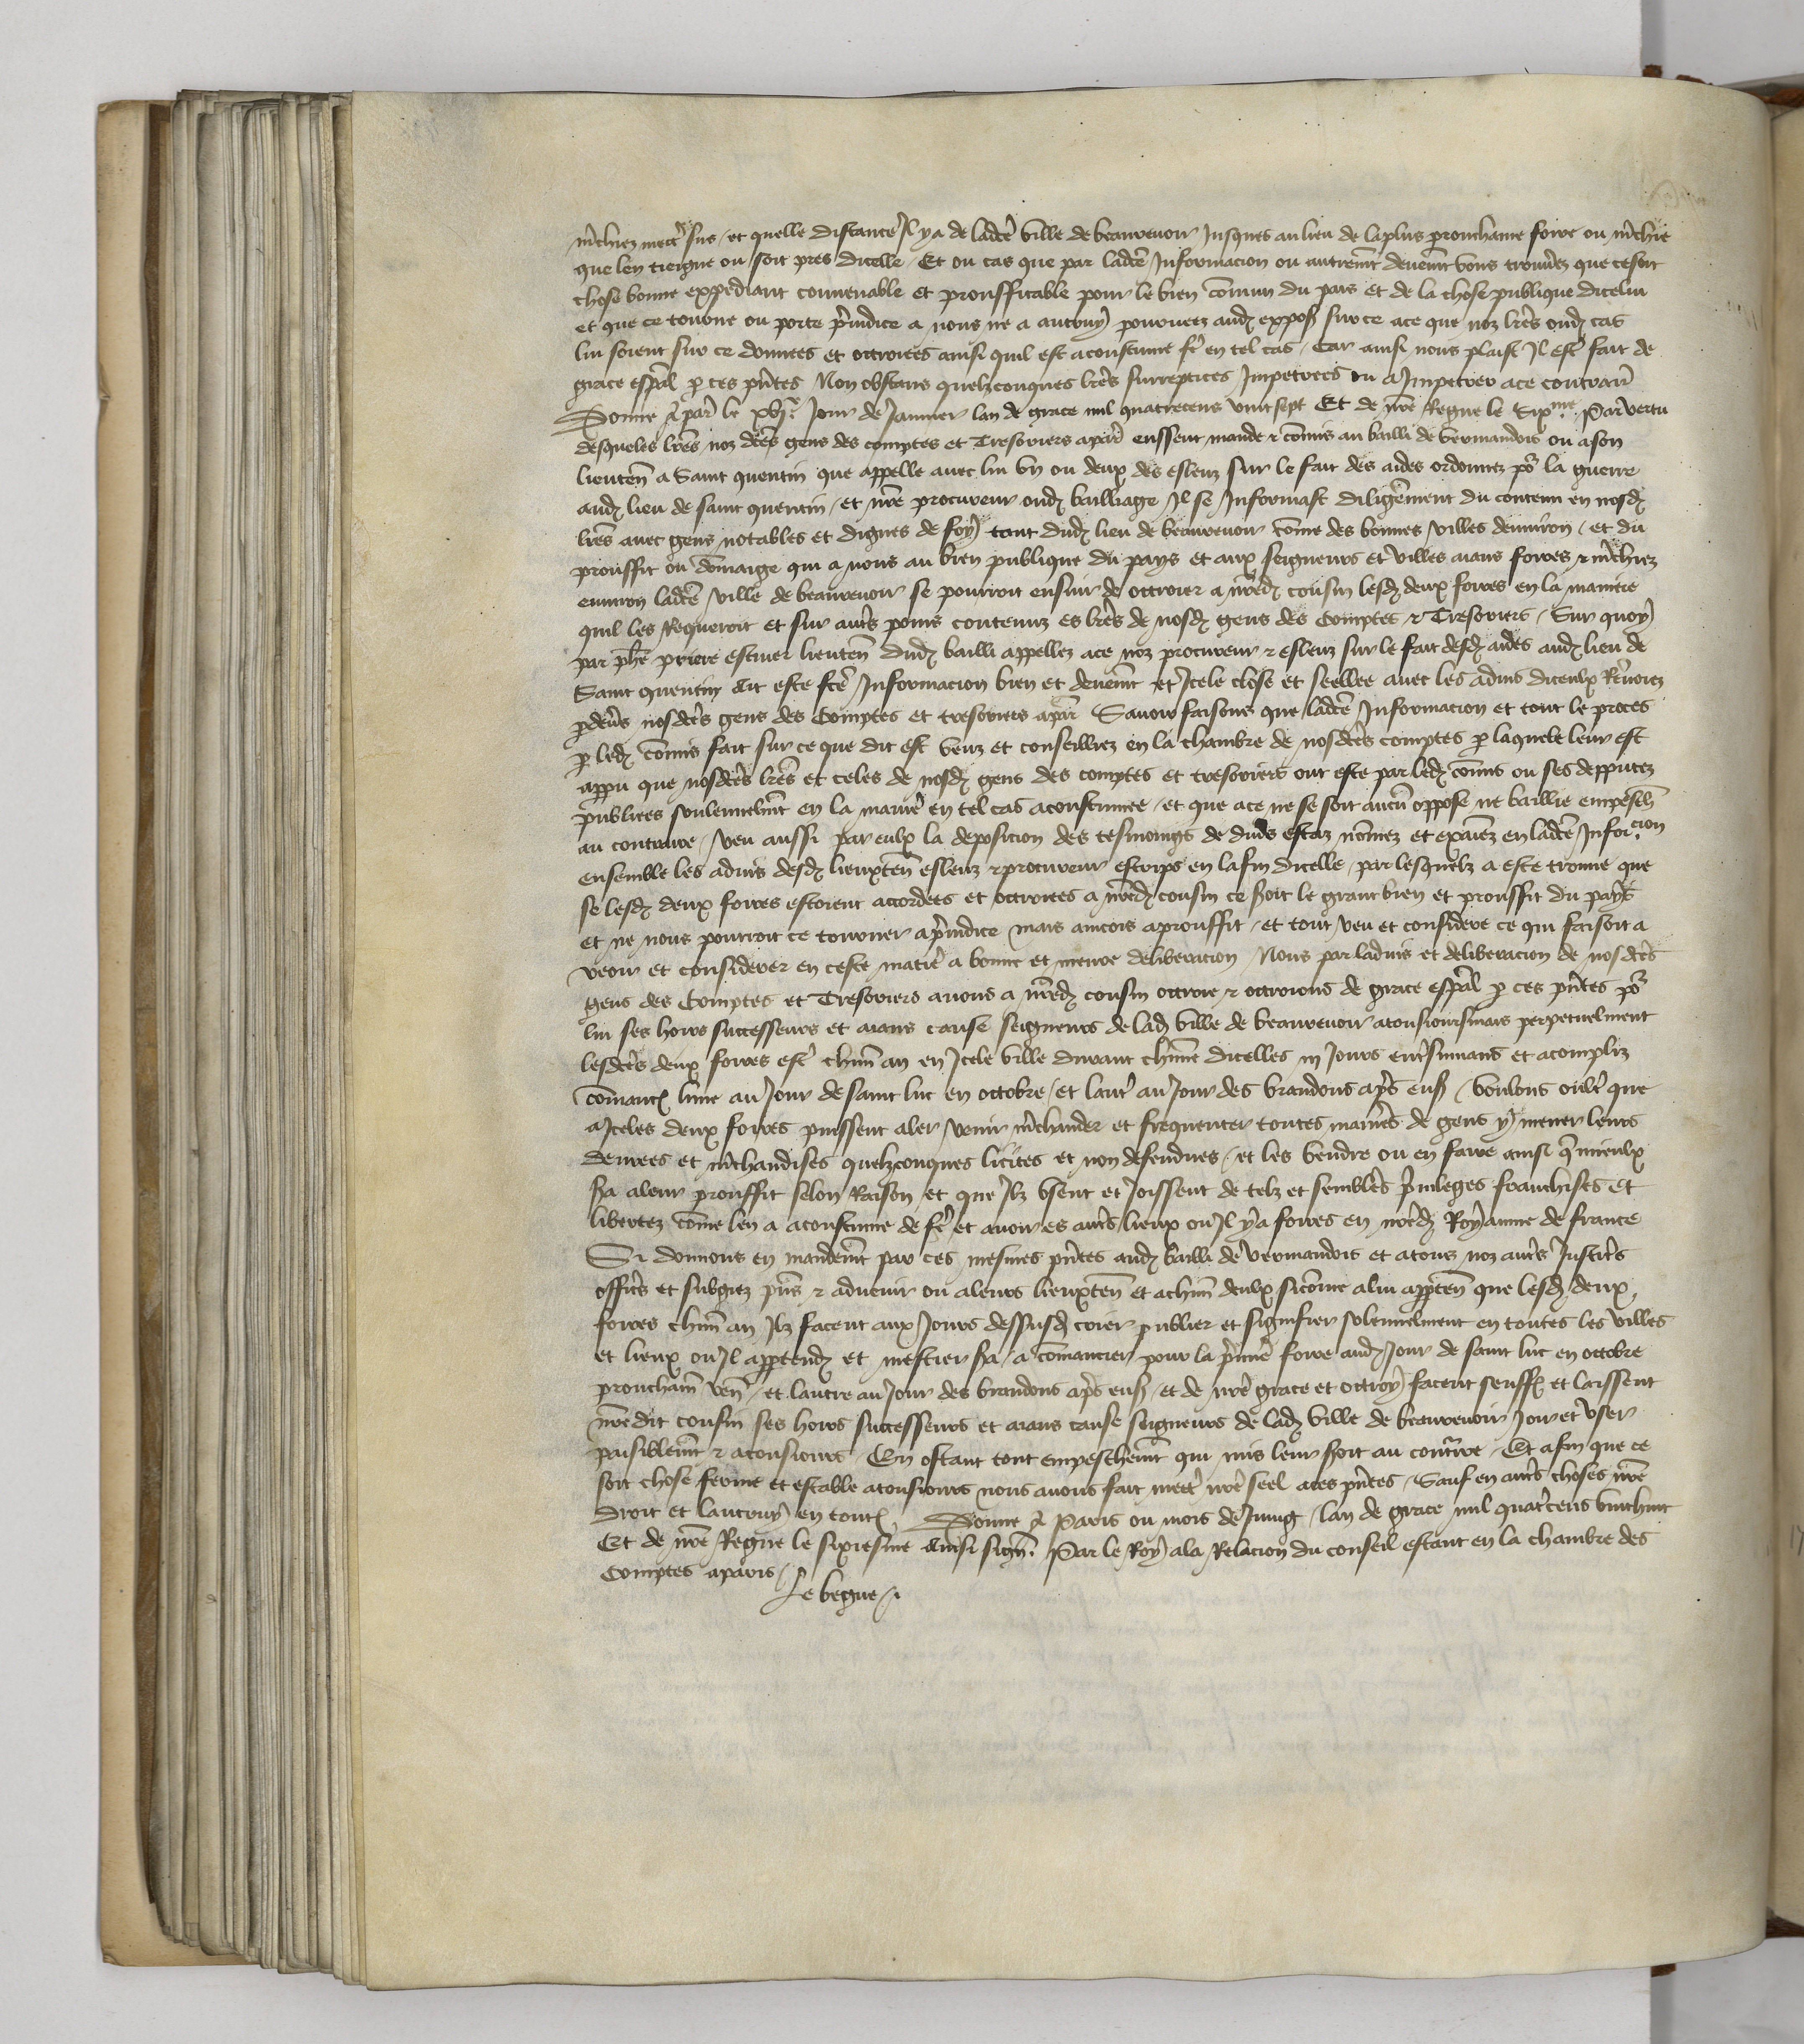 m̃chiez mectͬ sus / et quelle distance Il ya de ladcẽ ville de beaurevoir Jusques au lieu de laplus prouchaine foire ou m̃chie
que len tieigne ou soit pres dicelle / Et ou cas que par ladcẽ Informacion ou autremẽt deuemẽt vous trouvez que ce soit
chose bonne expediant convenable et prouffitable pour le bien cõmun du pais et de la chose publique dicelui
et que ce tourne ou porte p̃iudice a nous ne a autruy pourveez aud exposͭ sur ce ace que noz lrẽs oud cas
lui soient sur ce donnees et octroiees ainsi quil est acoustume fẽ en tel cas / Car ainsi nous plaist Il estͬ fait de
grace esp̃al p ces pñtes Non obstans quelzconques lrẽs surreptices Impetrees ou a Impetrer ace contraır̃
Donne a par̃ le xvjᵉ Jour de Janvier lan de grace mil quatrecens vint sept Et de nr̃e Regne le Sixᵐᵉ Par vertu
desqueles lrẽs noz dcẽs gens des comptes et Tresoriers apar̃ eussent mande & cõmis au bailli de vermandois ou a son
lieuteñ a Saint quentin que appelle avec lui vn ou deux des esleuz sur le fait des aides ordonnez po͛ la guerre
aud lieu de saint quentin / et nr̃e procureur oud bailliage Il se Informast diligẽment du contenu en nosd
lrẽs avec gens notables et dignes de foy tant dud lieu de beaurevoir cõme des bonnes villes denviron / et du
prouffit ou dõmaige qui a nous au bien publique du pays et aux seigneurs et villes aians foires & m̃chiez
environ ladcẽ ville de beaurevoir se pourroit ensuir de octroier a nr̃ed cousin lesd deux foires en la maniere
quil les Requeroit et sur autr̃s poins contenuz es lrẽs de nosd gens des Comptes & Tresoriers / Sur quoy
par phẽ priere escuier lieuteñ dud bailli appellez ace noz procureur & esleuz sur le fait desd aides aud lieu de
Saint quentin Ait este fcẽ Informacion bien et deuemẽt et Icele close et seellee avec les advis diceulx Rẽvoiez
p devẽs nosdcẽs gens des Comptes et tresoriers apar̃ Savoir faisons que ladcẽ Informacion et tout le proces
p led cõmis fait sur ce que dit est veuz et conseilliez en la chambre de nosdcẽs comptes p laquele leur est
appu que nosdcẽs lrẽs et celes de nosd gens des comptes et tresoriers ont este par led cõmis ou ses depputez
publiees soulennelmẽt en la manͬe en tel cas acoustumee / et que ace ne se soit aucũ oppose ne baillie empeschͭ
au contraire / veu aussi par eulx la deposicion des tesmoings de divẽs estaz nõmez et exaiez en ladcẽ Inforcion
ensemble les advis desd lieuxteñ esleuz & procureur escrips en la fin dicelle / par lesquelz a este trouve que
se lesd deux foires estoient accordees et octroiees a nr̃ed cousin ce seroit le grant bien et prouffit du pays
et ne nous pourroit ce tourner a p̃iudice mais aincois aprouffit / et tout veu et considere ce qui faisoit a
veoir et considerer en ceste matiẽ a bonne et meure deliberacion Nous par ladvis et deliberacion de nosdcẽs
gens des Comptes et Tresoriers avons a nr̃ed cousin octroie & octroions de grace esp̃al p ces pñtes po͛
lui ses hoirs successeurs et aians cause seigneurs de lad ville de beaurevoir atousioursmais perpetuelment
lesdcẽs deux foires estͬ chũn an en Icele ville durant chũne dicelles iij Jours entresuivans et acompliz
cõmancͭ lune au Jour de saint luc en octobre / et lautͬ au Jour des brandons apr̃s ensͭ / voulons oultͬ que
a Iceles deux foires puissent aler venir m̃chander et frequenter toutes manͬes de gens y mener leurs
denrees et m̃chandises quelzconques licites et non defendues / et les vendre ou en faire ainsi q̃ mieulx
sera a leur prouffit selon Raison et que Ilz vsent et Joissent de telz et semblẽs p̃vileges franchises et
libertez cõme len a acoustume de fẽ et avoir es autr̃s lieux ou Il y a foires en nr̃ed Royaume de france
Si donnons en mandemẽt par ces mesmes pñtes aud bailli de vermandois et atous noz autr̃s Justicr̃s
officr̃s et subgiez pñs & advenir ou a leurs lieuxteñ et a chũn deulx sicõme a lui apparteñ que lesd deux
foires chũn an Ilz facent aux Jours dessusd crier publier et signifier solennelment en toutes les villes
et lieux ou Il appartendͬ et mestier sera / a cõmancier pour la p̃mieͬ foire aud Jour de saint luc en octobre
prouchaiñ veñ / et lautre au Jour des brandons apr̃s ensͭ / et de nr̃e grace et octroy facent seuffͬ et laissent
nr̃e dit cousin ses hoirs successeurs et aians cause seigneurs de lad ville de beaurevoir Joir et vser
paisiblemẽt & atousiours En ostant tout empeschemẽt qui mis leur seroit au contr̃ire / Et afin que ce
soit chose ferme et estable atousiours nous avons fait mectͬ nr̃e seel aces pñtes / Sauf en autr̃s choses nr̃e
droit et lautruy en toutͭ Donne a Paris ou mois de Juing / lan de grace mil quatͬcens vinthuit
Et de nr̃e Regne le sixiesme Ainsi signͤ. Par le Roy ala Relacion du conseil estant en la chambre des
Comptes aparis /
Le begue /.